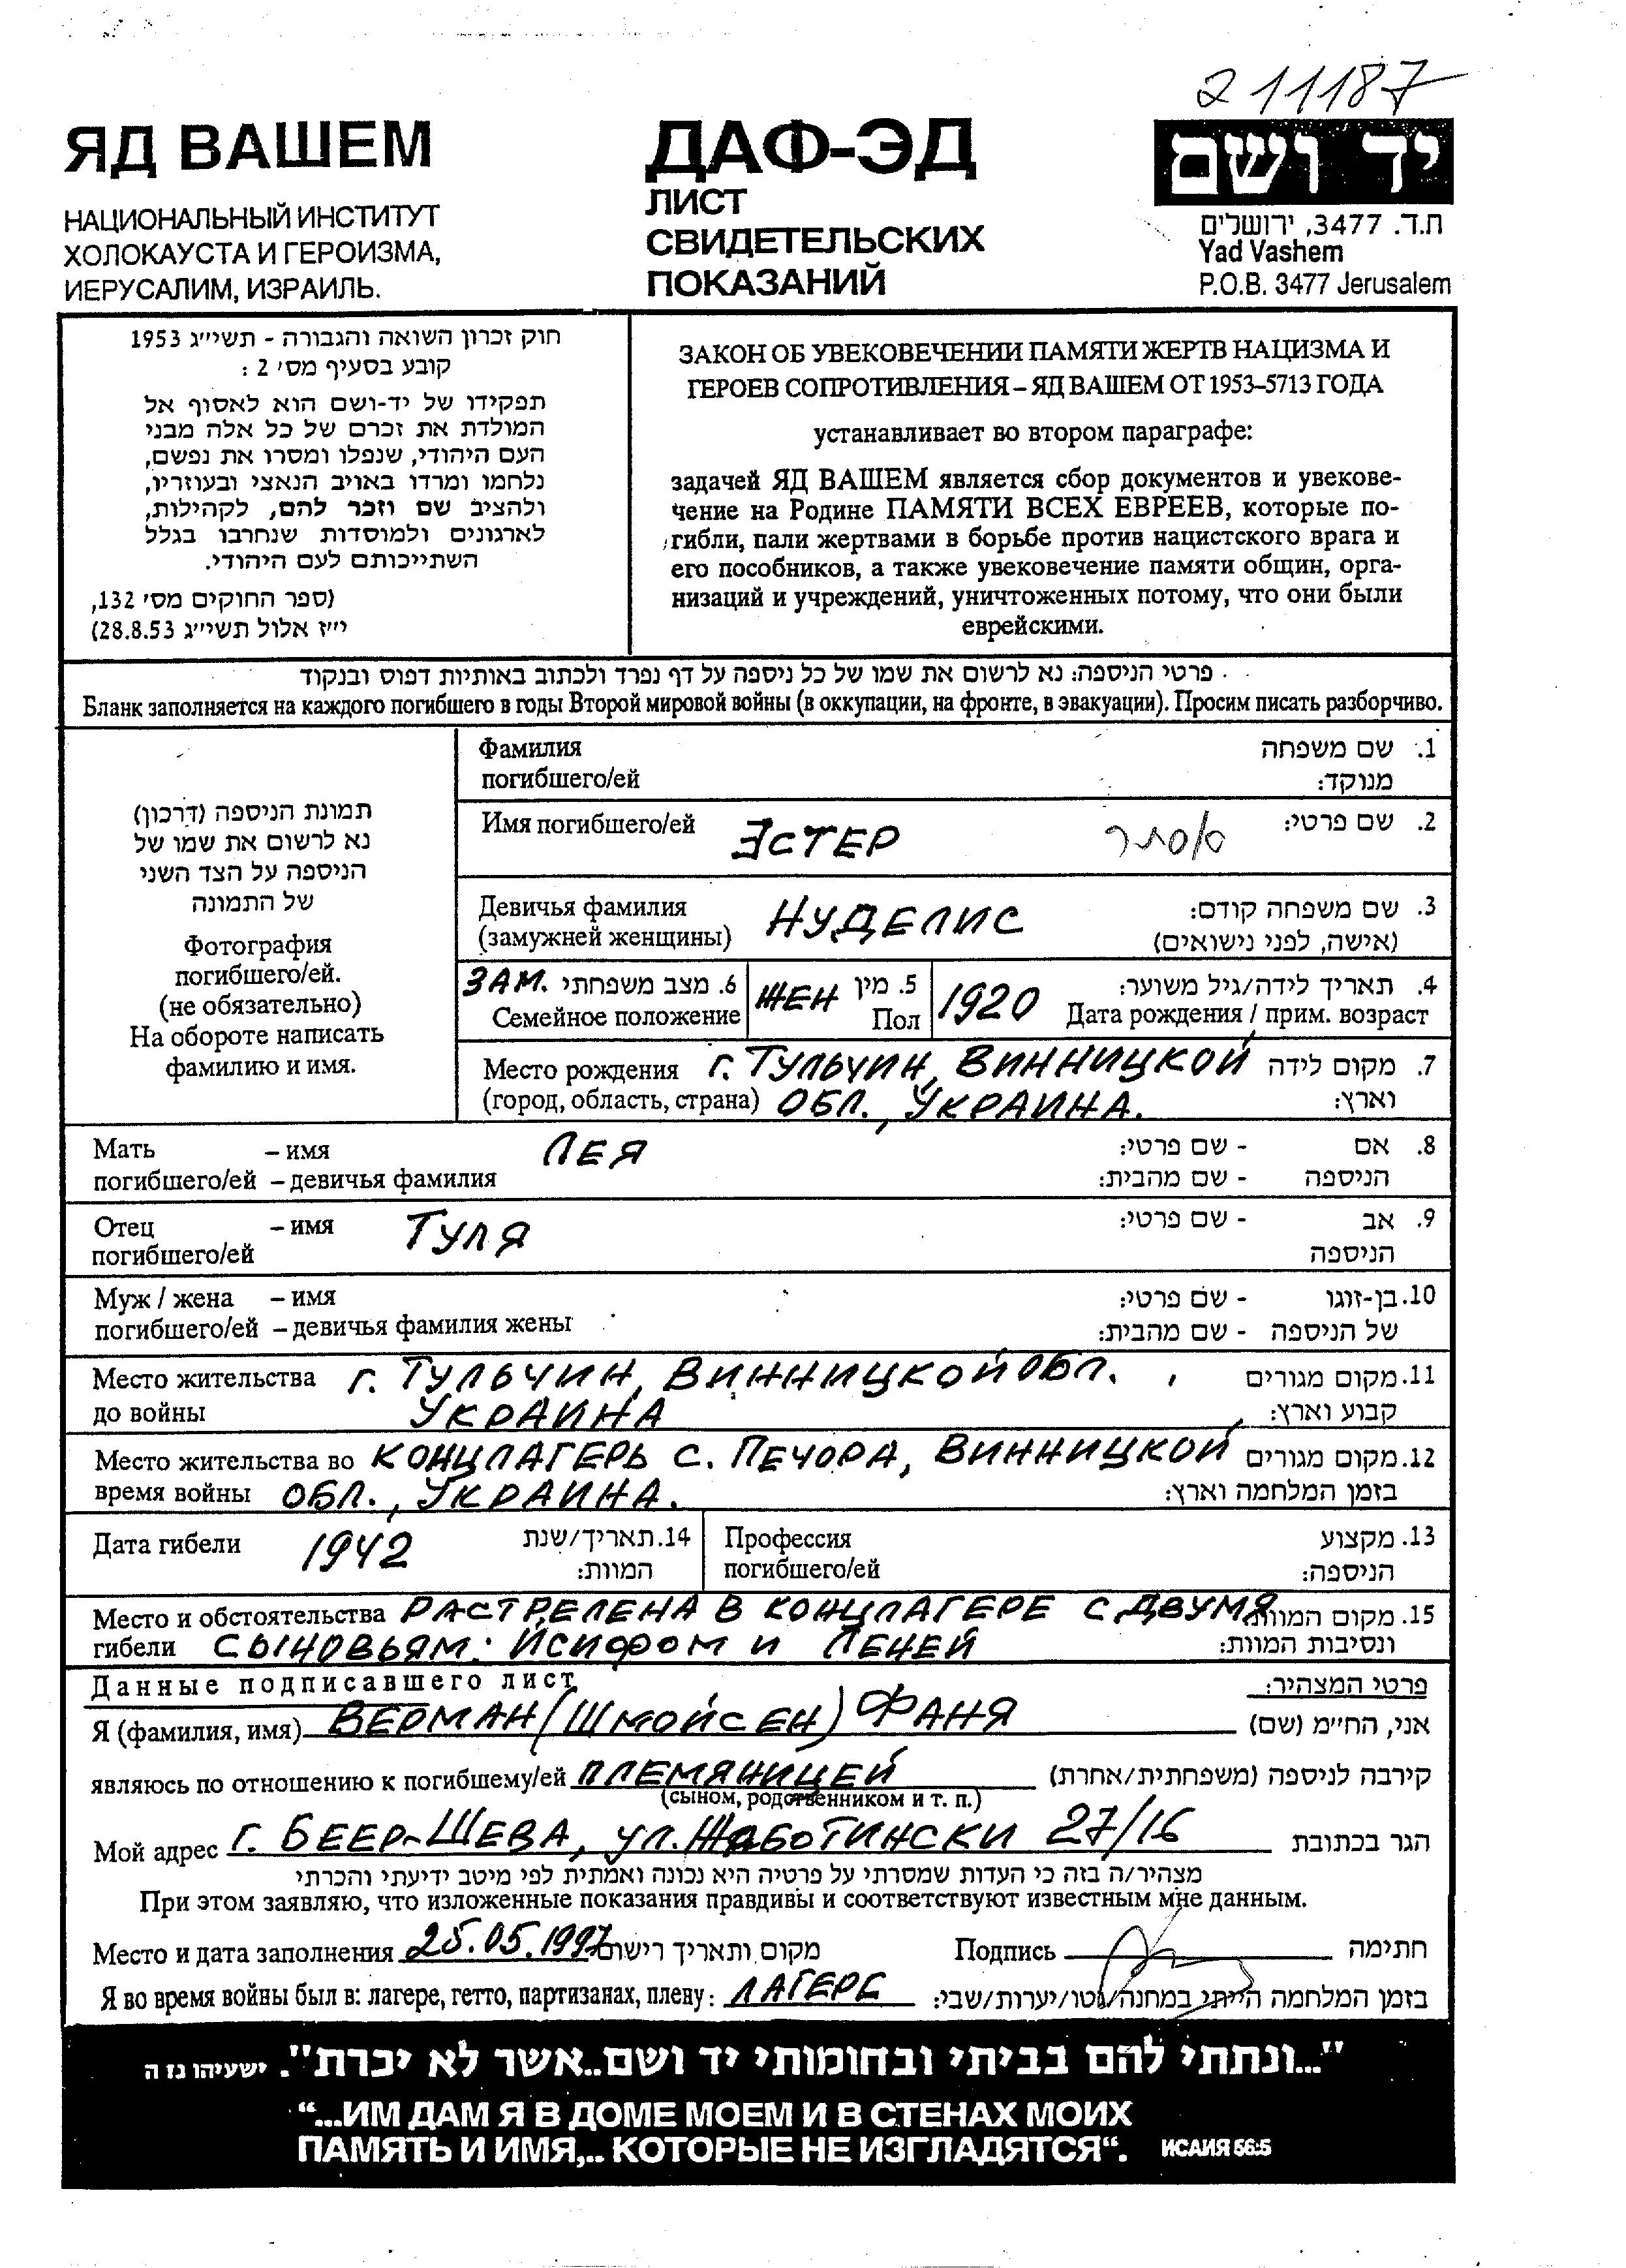 211187
ЯД ВАШЕМ
НАЦИОНАЛЬНЫЙ ИНСТИТУТ
ХОЛОКАУСТА И ГЕРОИЗМА,
ИЕРУСАЛИМ, ИЗРАИЛЬ.
ДАФ-ЭД
ЛИСТ
СВИДЕТЕЛЬСКИХ
ПОКАЗАНИЙ
יד ושם
ת.ד. 3477, ירושלים
Yad Vashem
P.O.B. 3477 Jerusalem
חוק זכרון השואה והגבורה - תשי״ג 1953
קובע בסעיף מס׳ 2 :
תפקידו של יד-ושם הוא לאסוף אל
המולדת את זכרם של כל אלה מבני
העם היהודי, שנפלו ומסרו את נפשם,
נלחמו ומרדו באויב הנאצי ובעוזריו,
ולהציב שם וזכר להם, לקהילות,
לארגונים ולמוסדות שנחרבו בגלל
השתייכותם לעם היהודי.
(ספר החוקים מס׳ 132,
י״ז אלול תשי״ג 28.8.53)
ЗАКОН ОБ УВЕКОВЕЧЕНИИ ПАМЯТИ ЖЕРТВ НАЦИЗМА И
ГЕРОЕВ СОПРОТИВЛЕНИЯ – ЯД ВАШЕМ ОТ 1953–5713 ГОДА
устанавливает во втором параграфе:
задачей ЯД ВАШЕМ является сбор документов и увекове-
чение на Родине ПАМЯТИ ВСЕХ ЕВРЕЕВ, которые по-
гибли, пали жертвами в борьбе против нацистского врага и
его пособников, а также увековечение памяти общин, орга-
низаций и учреждений, уничтоженных потому, что они были
еврейскими.
פרטי הניספה: נא לרשום את שמו של כל ניספה על דף נפרד ולכתוב באותיות דפוס ובנקוד
Бланк заполняется на каждого погибшего в годы Второй мировой войны (в оккупации, на фронте, в эвакуации). Просим писать разборчиво.
תמונת הניספה (דרכון)
נא לרשום את שמו של
הניספה על הצד השני
של התמונה
Фотография
погибшего/ей.
(не обязательно)
На обороте написать
фамилию и имя.
Фамилия 1. שם משפחה
погибшего/ей מנוקד:
Имя погибшего/ей ЭСТЕР אסתר 2. שם פרטי:
Девичья фамилия НУДЕЛИС 3. שם משפחה קודם:
(замужней женщины) (אישה, לפני נישואים)
ЗАМ. 6. מצב משפחתי ЖЕН 5. מין 1920 4. תאריך לידה/גיל משוער:
Семейное положение Пол Дата рождения / прим. возраст
Место рождения Г. ТУЛЬЧИН, ВИННИЦКОЙ 7. מקום לידה
(город, область, страна) ОБЛ., УКРАИНА. וארץ:
Мать – имя ЛЕЯ 8. אם - שם פרטי:
погибшего/ей – девичья фамилия הניספה - שם מהבית:
Отец – имя ТУЛЯ 9. אב - שם פרטי:
погибшего/ей הניספה
Муж / жена – имя 10. בן-זוגו - שם פרטי:
погибшего/ей – девичья фамилия жены של הניספה - שם מהבית:
Место жительства Г. ТУЛЬЧИН, ВИННИЦКОЙ ОБЛ., 11. מקום מגורים
до войны УКРАИНА קבוע וארץ:
Место жительства во КОНЦЛАГЕРЬ С. ПЕЧОРА, ВИННИЦКОЙ 12. מקום מגורים
время войны ОБЛ., УКРАИНА. בזמן המלחמה וארץ:
Дата гибели 1942 14. תאריך/שנת Профессия 13. מקצוע
המוות: погибшего/ей הניספה:
Место и обстоятельства РАСТРЕЛЕНА В КОНЦЛАГЕРЕ С ДВУМЯ 15. מקום המוות
гибели СЫНОВЬЯМ: ИСИФОМ И ЛЕНЕЙ ונסיבות המוות:
Данные подписавшего лист פרטי המצהיר:
Я (фамилия, имя) ВЕРМАН (ШМОЙСЕН) ФАНЯ אני, הח״מ (שם)
являюсь по отношению к погибшему/ей ПЛЕМЯНИЦЕЙ קירבה לניספה (משפחתית/אחרת)
(сыном, родственником и т. п.)
Мой адрес Г. БЕЕР-ШЕВА, УЛ. ЖАБОТИНСКИ 27/16 הגר בכתובת
מצהיר/ה בזה כי העדות שמסרתי על פרטיה היא נכונה ואמתית לפי מיטב ידיעתי והכרתי
При этом заявляю, что изложенные показания правдивы и соответствуют известным мне данным.
Место и дата заполнения 25.05.1997 מקום ותאריך רישום Подпись חתימה
Я во время войны был в: лагере, гетто, партизанах, плену: ЛАГЕРЕ בזמן המלחמה הייתי במחנה/גטו/יערות/שבי:
"...ונתתי להם בביתי ובחומותי יד ושם..אשר לא יכרת". ישעיהו נו ה
“...ИМ ДАМ Я В ДОМЕ МОЕМ И В СТЕНАХ МОИХ
ПАМЯТЬ И ИМЯ,.. КОТОРЫЕ НЕ ИЗГЛАДЯТСЯ“. ИСАИЯ 56:5